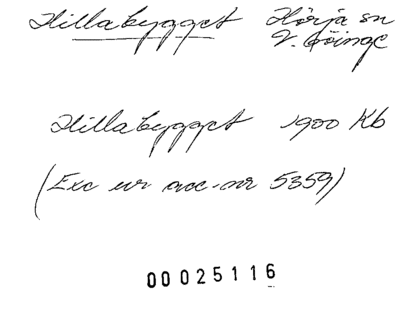 Hillabygget Hörja sn
V. Göinge
Hillabygget 1900 Kb
(Exc ur acc.-nr 5359)
00025116